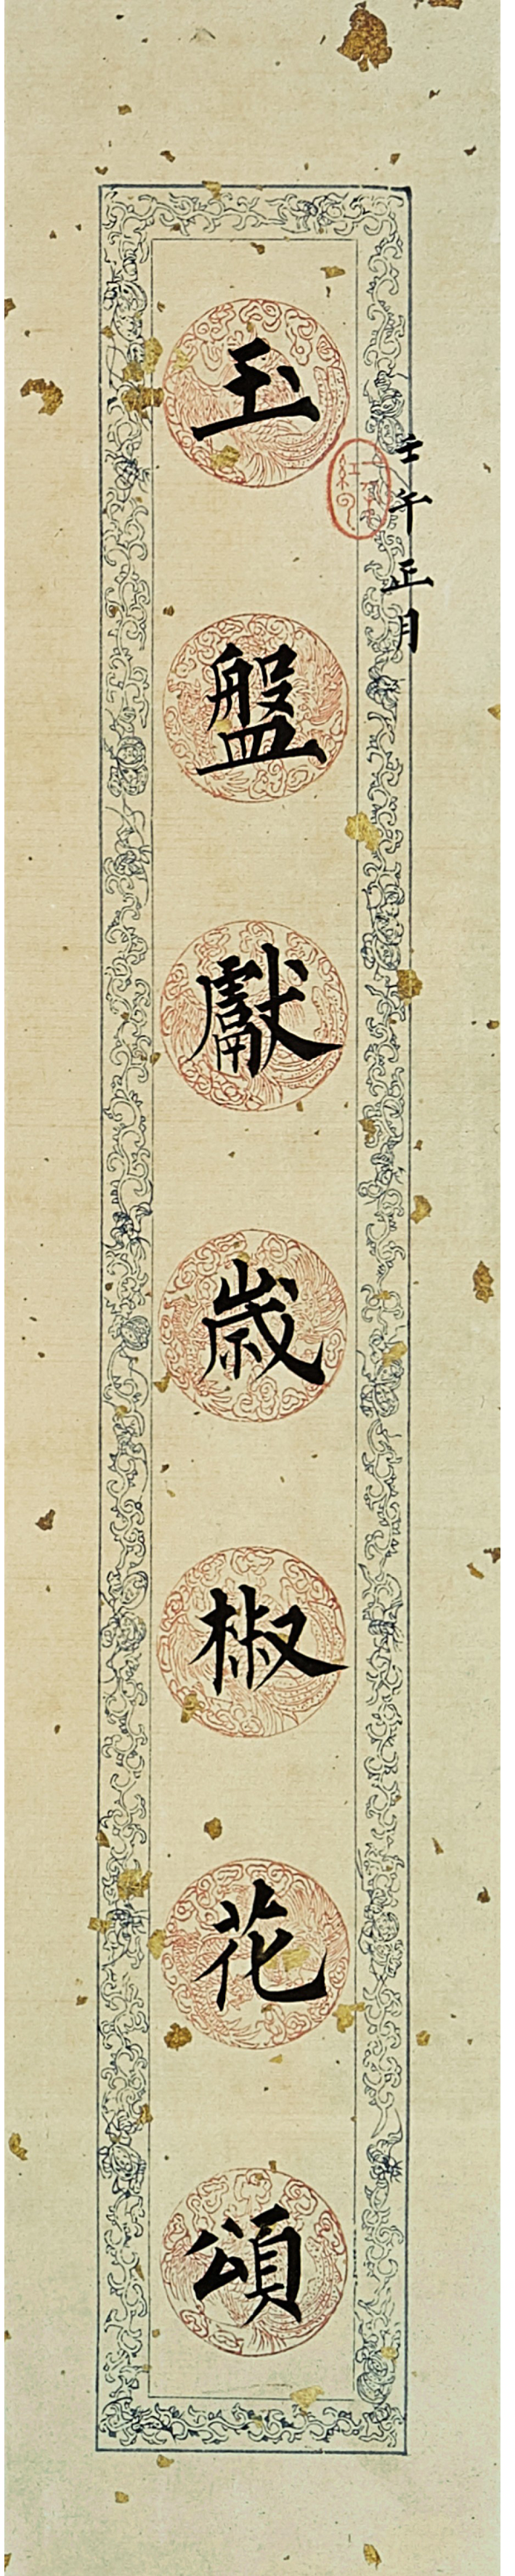 壬午正月
玉盤獻歲椒花頌